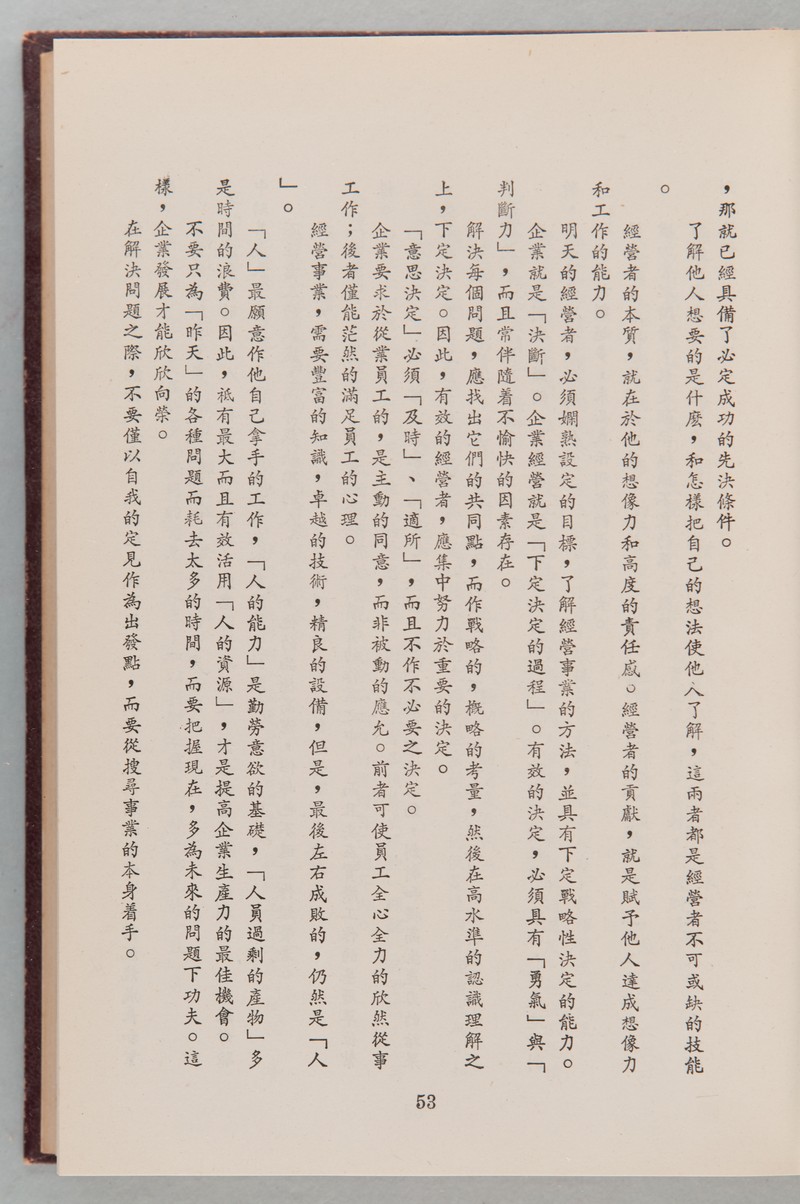 ，那就已經具備了必定成功的先決條件。
了解他人想要的是什麼，和怎樣把自己的想法使他人了解，這兩者都是經營者不可或缺的技能
。
經營者的本質，就在於他的想像力和高度的責任感。經營者的貢獻，就是賦予他人達成想像力
和工作的能力。
明天的經營者，必須嫻熟設定的目標，了解經營事業的方法，並具有下定戰略性決定的能力。
企業就是「決斷」。企業經營就是「下定決定的過程」。有效的決定，必須具有「勇氣」與「
判斷力」，而且常伴隨着不愉快的因素存在。
解決每個問題，應找出它們的共同點，而作戰略的，概略的考量，然後在高水準的認識理解之
上，下定決定。因此，有效的經營者，應集中努力於重要的決定。
「意思決定」必須「及時」、「適所」，而且不作不必要之決定。
企業要求於從業員工的，是主動的同意，而非被動的應允。前者可使員工全心全力的欣然從事
工作；後者僅能茫然的滿足員工的心理。
經營事業，需要豐富的知識，卓越的技術，精良的設備，但是，最後左右成敗的，仍然是「人
」。
「人」最願意作他自己拿手的工作，「人的能力」是勤勞意欲的基礎，「人員過剩的產物」多
是時間的浪費。因此，祗有最大而且有效活用「人的資源」，才是提高企業生產力的最佳機會。
不要只為「昨天」的各種問題而耗去太多的時間，而要把握現在，多為未來的問題下功夫。這
樣，企業發展才能欣欣向榮。
在解決問題之際，不要僅以自我的定見作為出發點，而要從搜尋事業的本身着手。
53